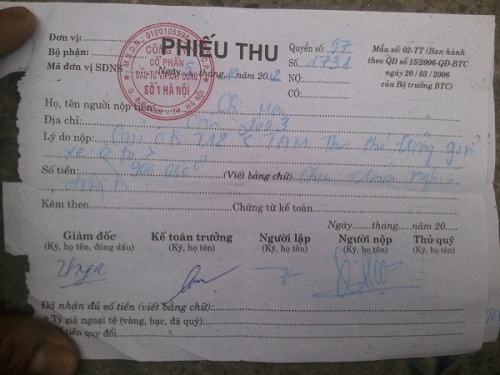 Đơn vị:
Bộ phận:
Mã đơn vị SDNS
M.S.D.N: 0100105398
CÔNG TY
CỔ PHẦN
ĐẦU TƯ VÀ XÂY DỰNG
SỐ 1 HÀ NỘI
PHIẾU THU
Ngày 5 tháng 20
Quyển số: 97
Số 1731
NỢ
CÓ:
Mẫu số: 02-TT (Ban hành
theo QĐ số 15/2006-QĐ-BTC
ngày 20/03/2006
của Bộ trưởng BTC)
Họ, tên người nộp tiền: Chị
Địa chỉ:
Lý do nộp: Thu phí trông giữ
xe
Số tiền: 900.000đ (Viết bằng chữ) Chín trăm nghìn
đồng
Kèm theo Chứng từ kế toán:
Ngày tháng năm 20
Giám đốc Kế toán trưởng Người lập Người nộp Thủ quỹ
(Ký, họ tên, đóng dấu) (Ký, họ tên) (Ký, họ tên) (Ký, họ tên) (Ký, họ tên)
Đã nhận đủ số tiền (viết bằng chữ):
+ Tỷ giá ngoại tệ (vàng, bạc, đá quý)
tiền quy đổi